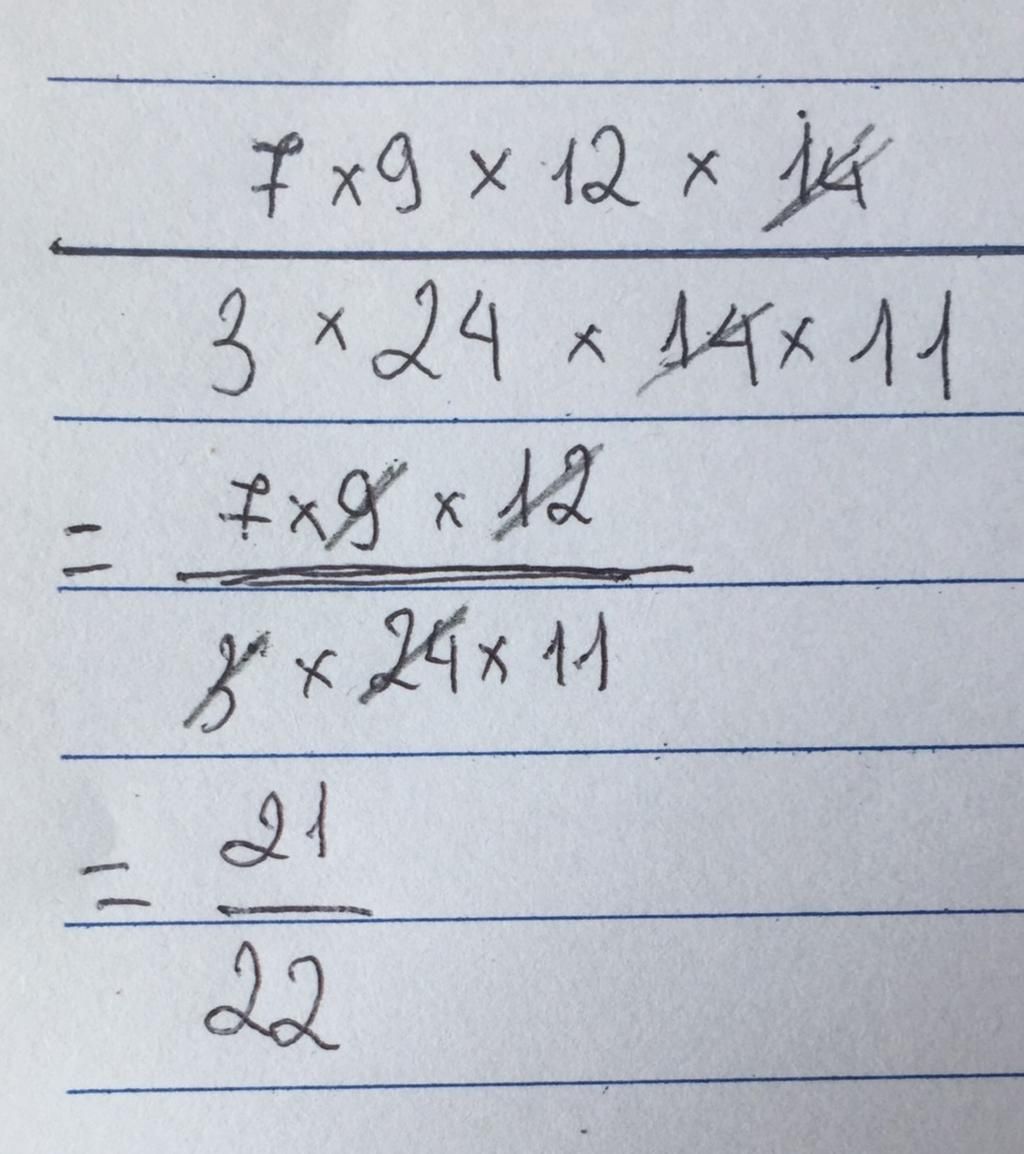 7 × 9 × 12 × 14
3 × 24 × 14 × 11
= 7 × 9 × 12
3 × 24 × 11
= 21
22